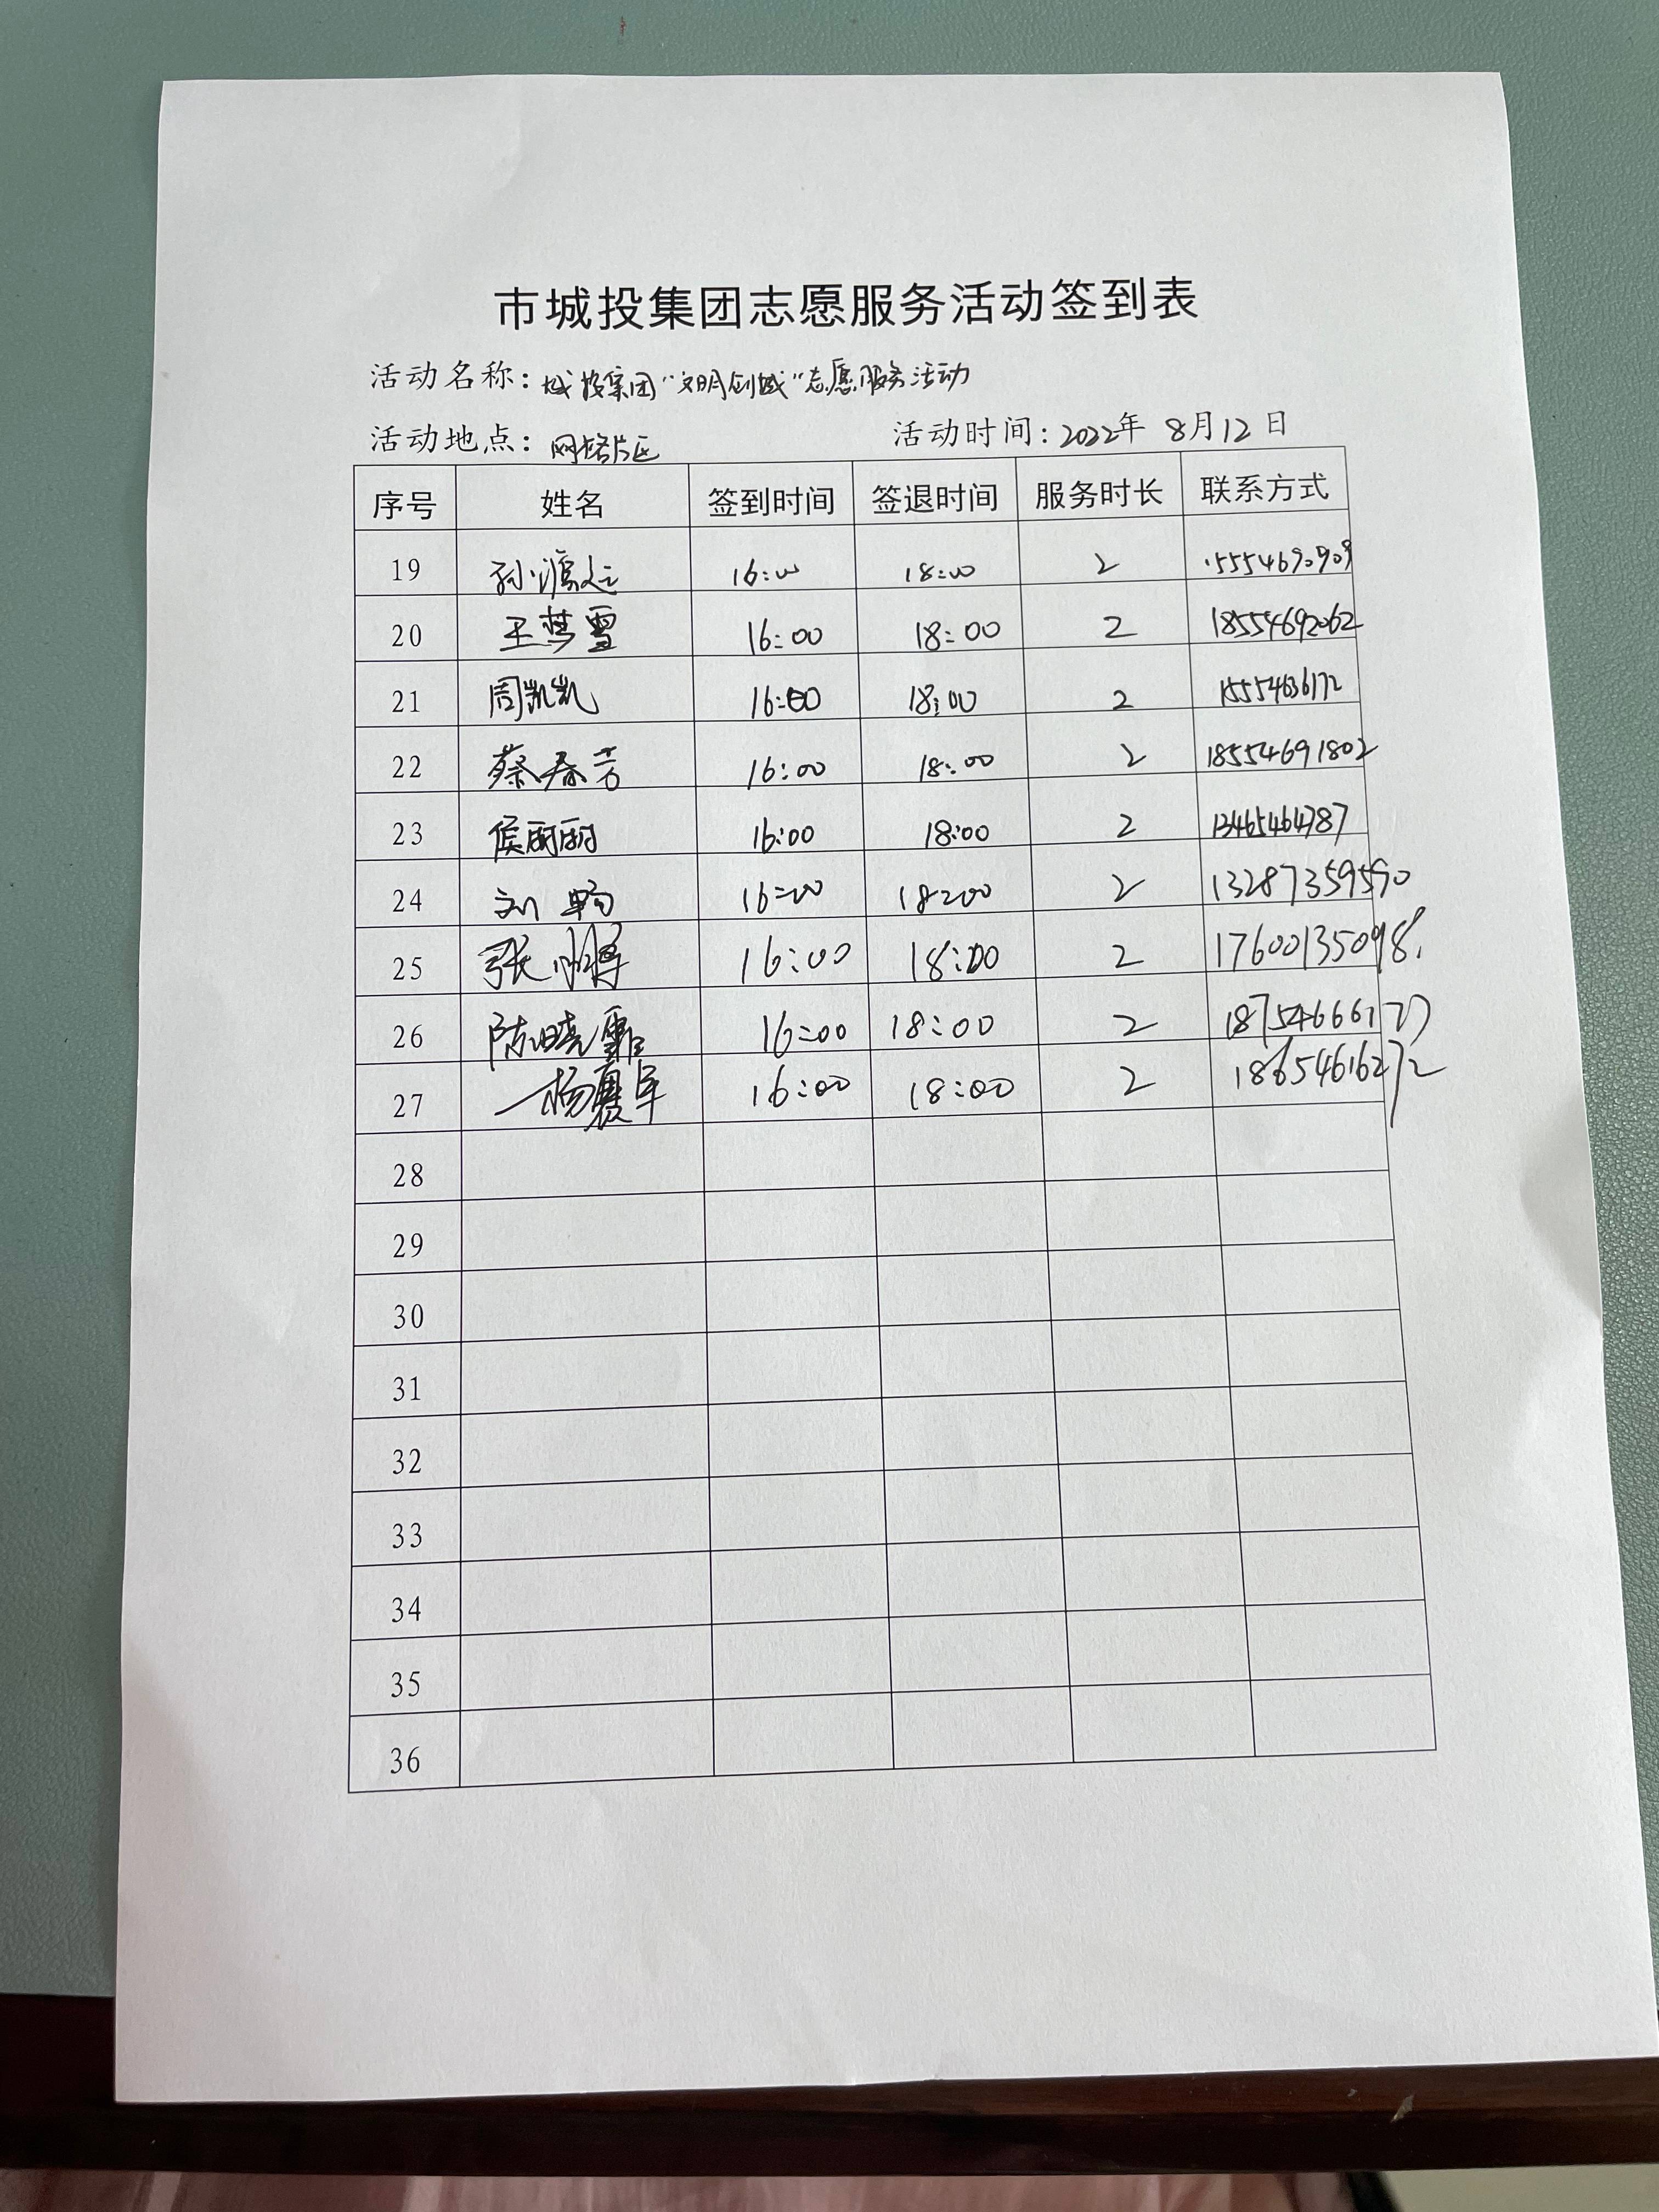 市城投集团志愿服务活动签到表
活动名称：城投集团“文明创城”志愿服务活动
活动地点：网格片区 活动时间：2022年 8月12日
序号 姓名 签到时间 签退时间 服务时长 联系方式
19 16:00 18:00 2 15554690909
20 王梦雪 16:00 18:00 2 18554692062
21 周凯凯 16:00 18:00 2 15554636172
22 蔡春芳 16:00 18:00 2 18554691802
23 侯丽丽 16:00 18:00 2 13465464787
24 刘畅 16:00 18:00 2 13287359590
25 张 16:00 18:00 2 17600135098
26 陈晓霏 16:00 18:00 2
27 杨赛军 16:00 18:00 2 18654616272
28
29
30
31
32
33
34
35
36